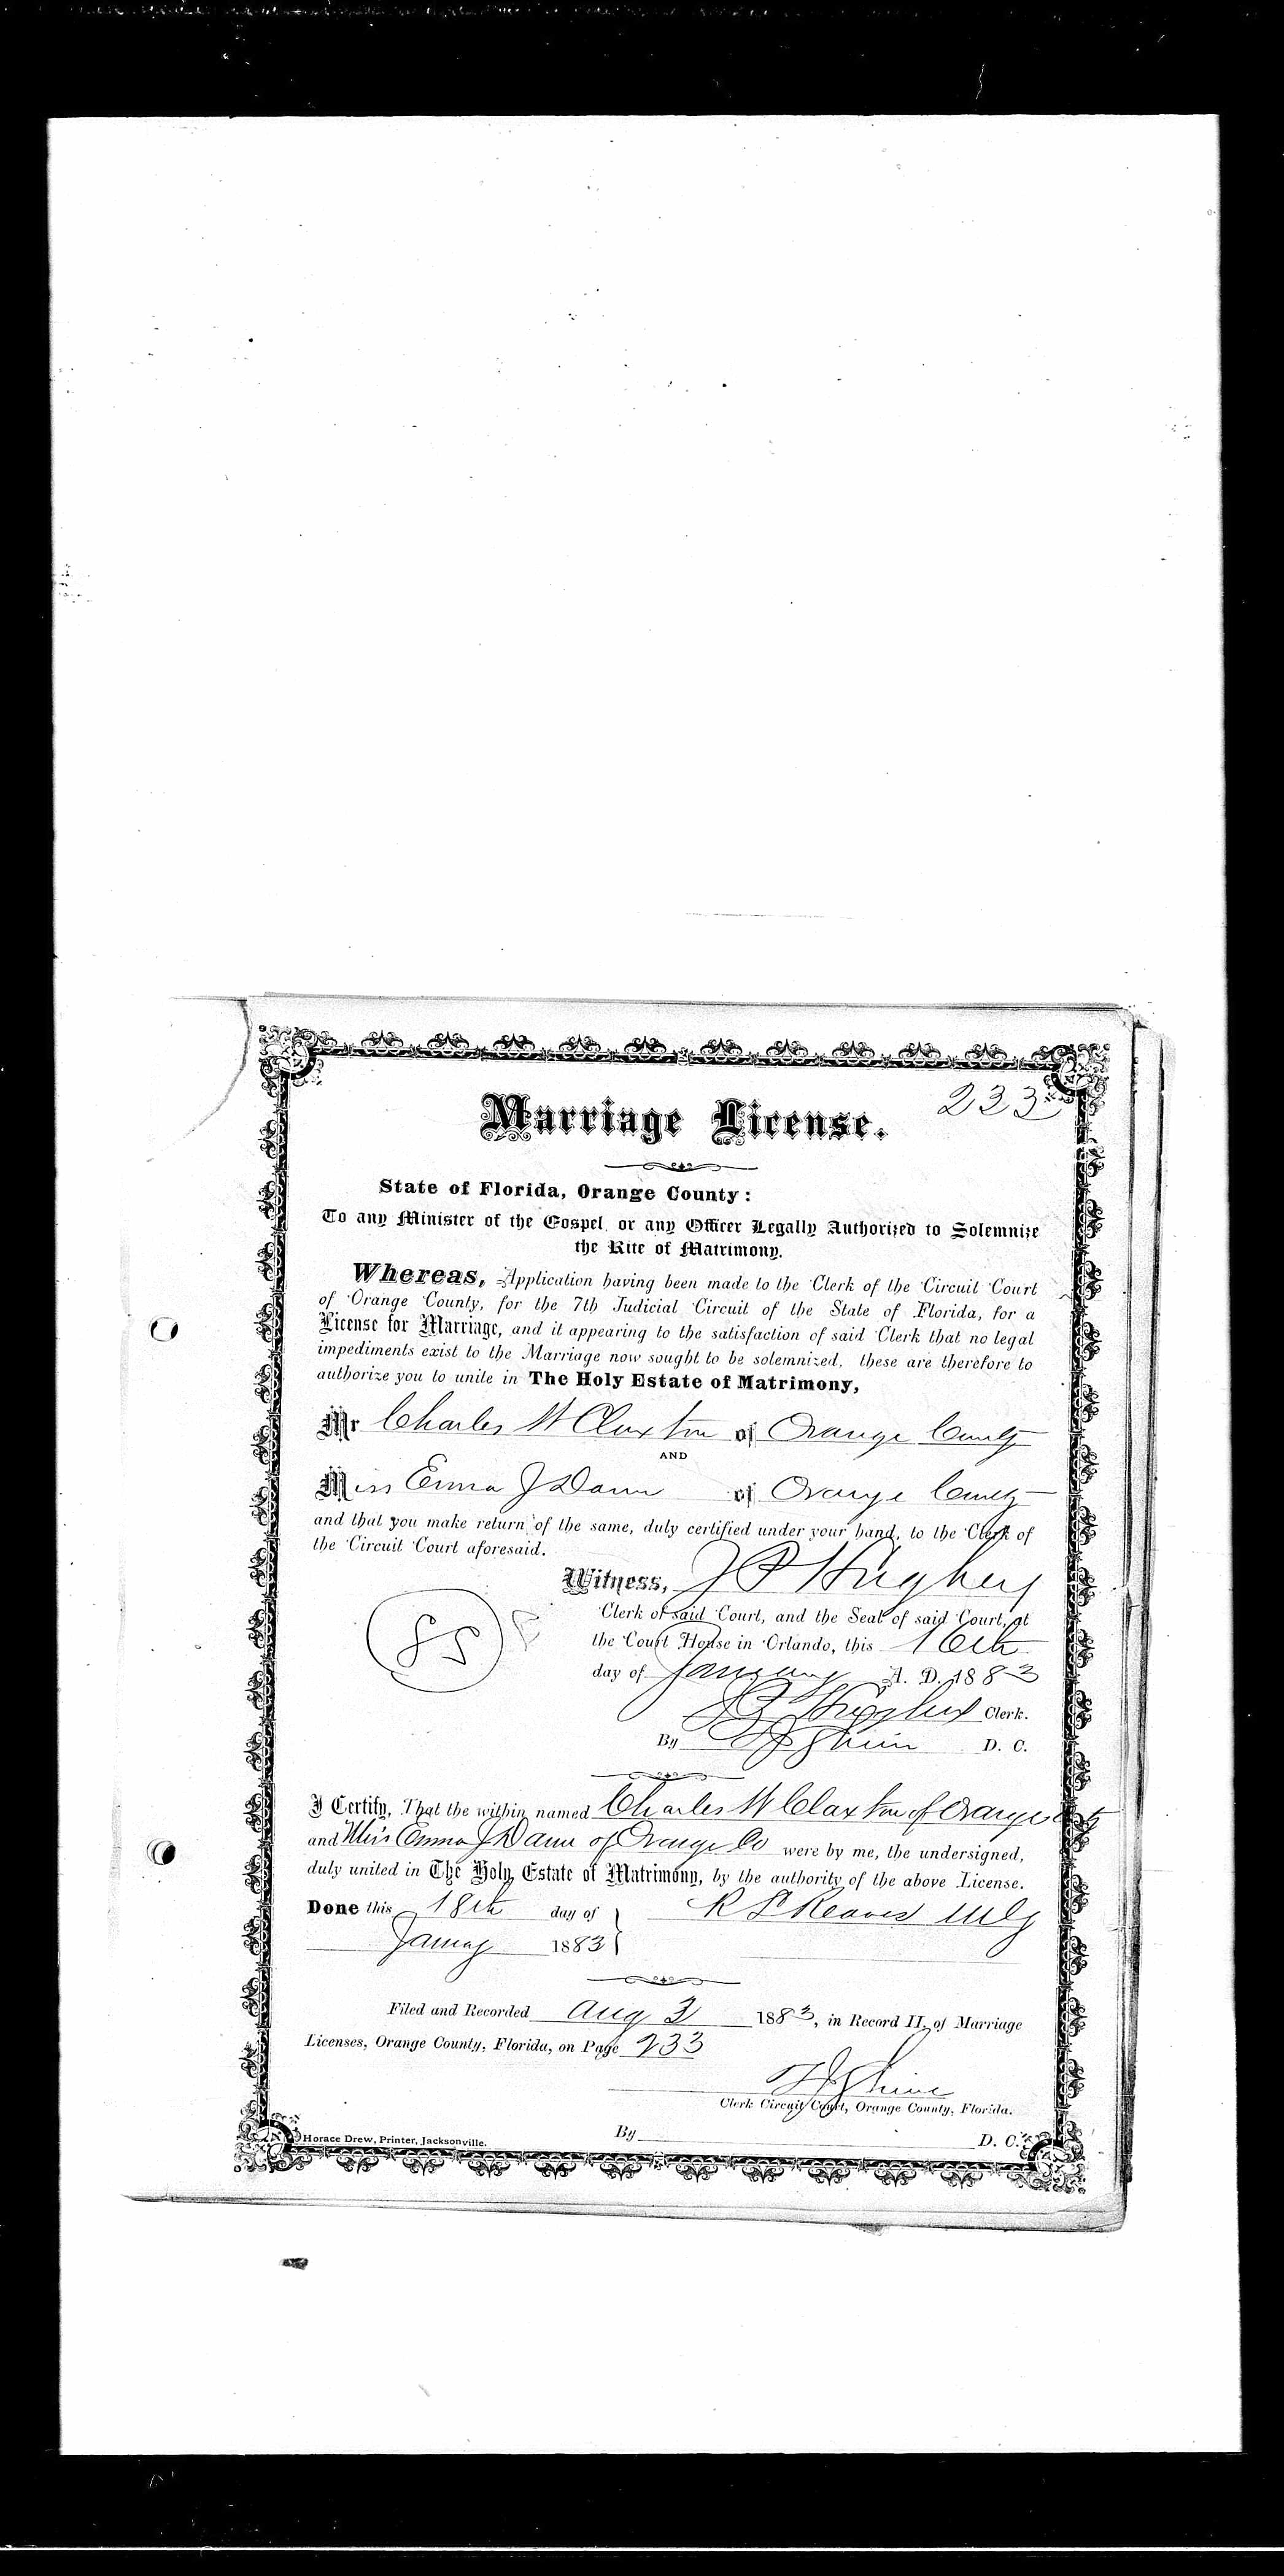 233
Marriage License.
State of Florida, Orange County:
To any Minister of the Gospel, or any Officer Legally Authorized to Solemnize
the Rite of Matrimony.
Whereas, Application having been made to the Clerk of the Circuit Court
of Orange County, for the 7th Judicial Circuit of the State of Florida, for a
License for Marriage, and it appearing to the satisfaction of said Clerk that no legal
impediments exist to the Marriage now sought to be solemnized, these are therefore to
authorize you to unite in The Holy Estate of Matrimony,
Mr Charles W Claxton of Orange County
AND
Miss Emma J Dann of Orange County
and that you make return of the same, duly certified under your hand, to the Clerk of
the Circuit Court aforesaid.
Witness, J P Hughey
Clerk of said Court, and the Seal of said Court, at
the Court House in Orlando, this 16th
day of January A. D. 1883
J P Hughey Clerk.
By T J Shine D. C.
85
I Certify, That the within named Charles W Claxton of Orange
and Miss Emma J Dann of Orange Co were by me, the undersigned,
duly united in The Holy Estate of Matrimony, by the authority of the above License.
Done this 18th day of R L Reaves
January 1883
Filed and Recorded Aug 3 1883, in Record II, of Marriage
Licenses, Orange County, Florida, on Page 233
T J Shine
Clerk Circuit Court, Orange County, Florida.
By D. C.
Horace Drew, Printer, Jacksonville.